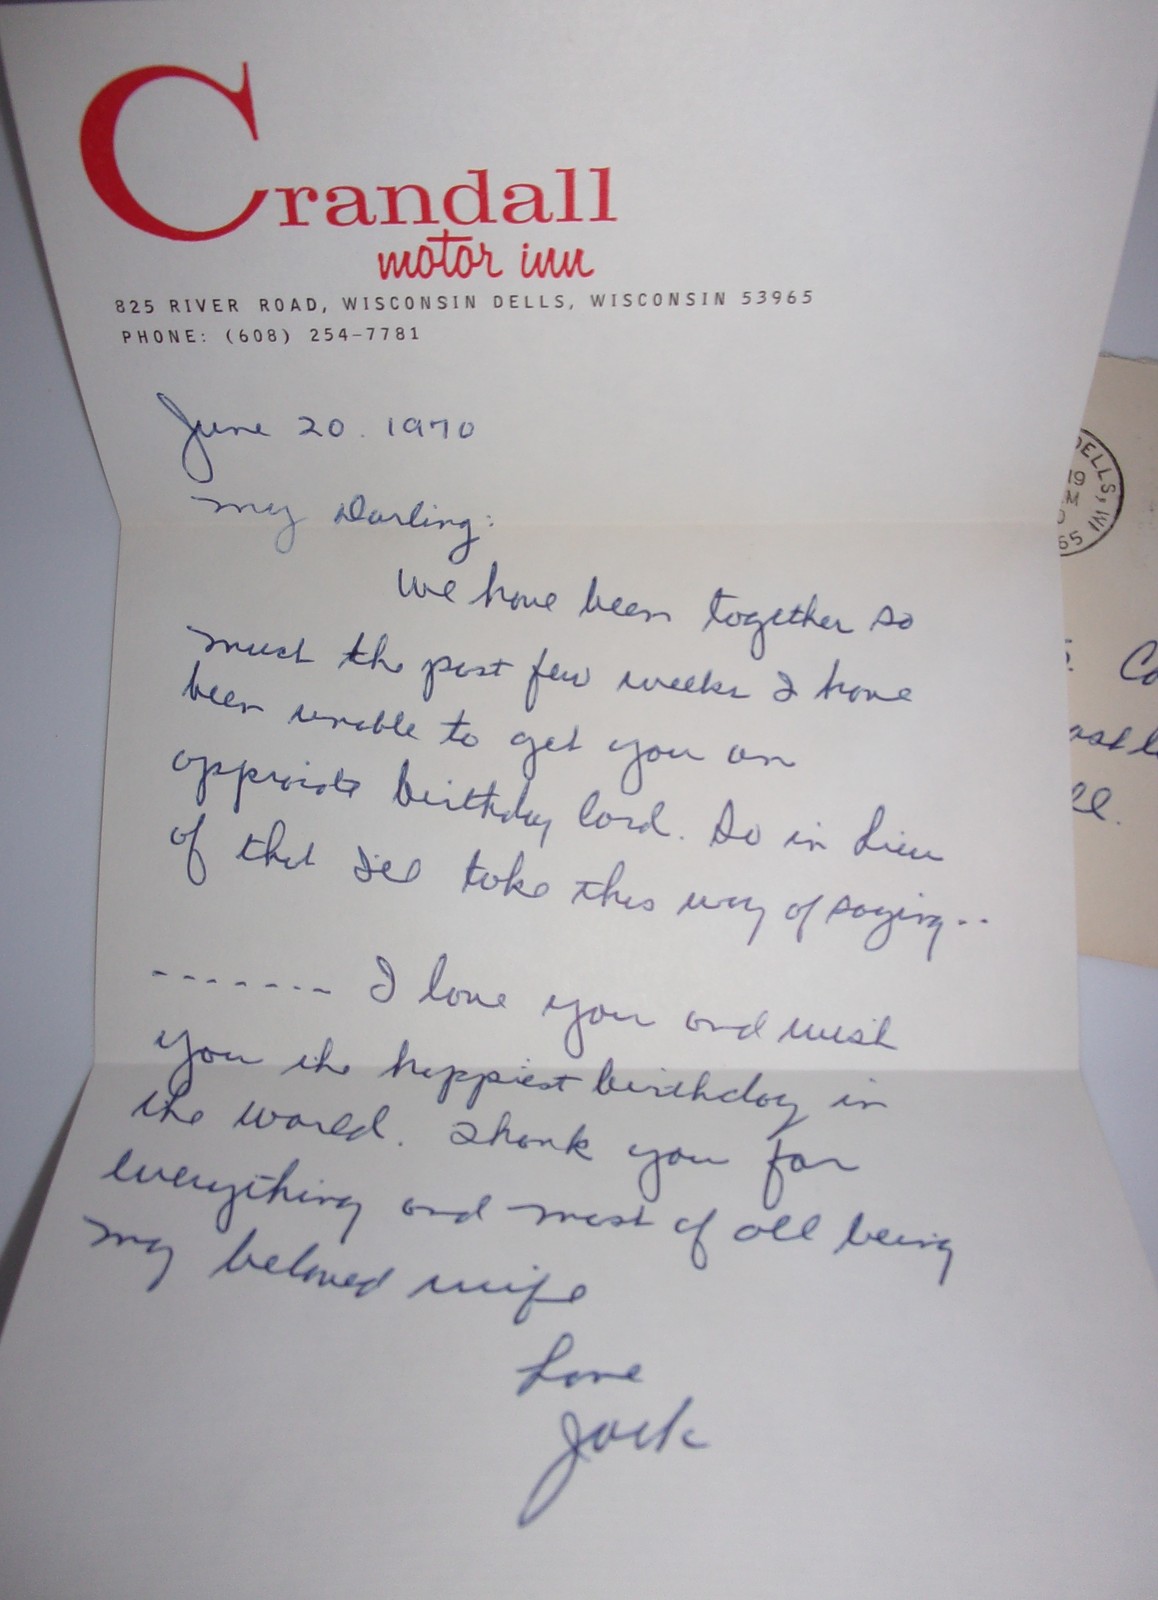 Crandall
motor inn
825 RIVER ROAD, WISCONSIN DELLS, WISCONSIN 53965
PHONE: (608) 254-7781
June 20. 1970
My Darling:
We have been together so
much the past few weeks I have
been unable to get you an
appriate birthday card. So in Lieu
of that I'll take this way of saying..
------- I love you and wish
you the happiest birthday in
the world. Thank you for
everything and most of all being
my beloved wife
Love
Jack
DELLS, WI
19
M
65
Co
ll.